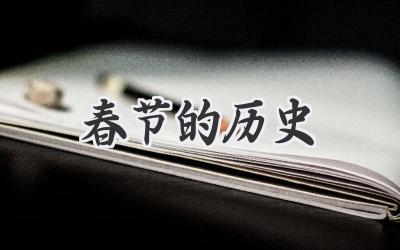 春节的历史